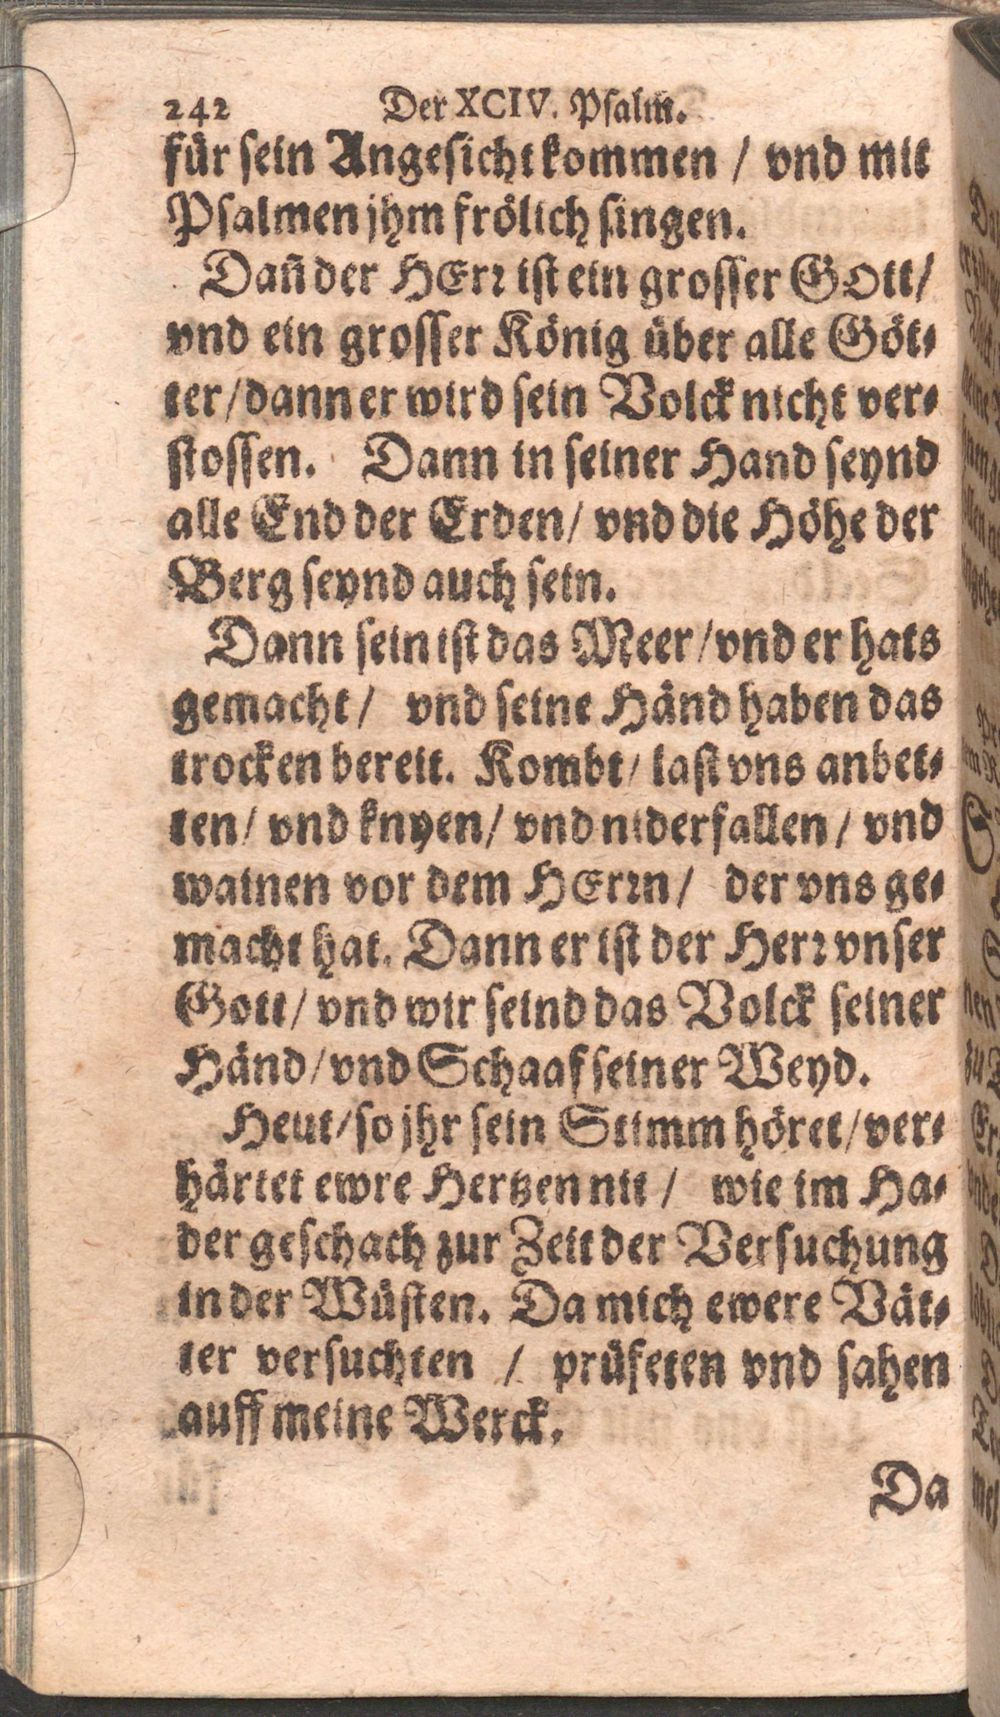 242 Der XCIV. Psalm.
für sein Angesicht kommen / vnd mit
Psalmen jhm frölich singen.
Dañ der HErr ist ein grosser GOtt /
vnd ein grosser König über alle Göt-
ter / dann er wird sein Volck nicht ver-
stossen. Dann in seiner Hand seynd
alle End der Erden / vnd die Höhe der
Berg seynd auch sein.
Dann sein ist das Meer / vnd er hats
gemacht / vnd seine Händ haben das
trocken bereit. Kombt / last vns anbet-
ten / vnd knyen / vnd niderfallen / vnd
wainen vor dem HErrn / der vns ge-
macht hat. Dann er ist der Herr vnser
Gott / vnd wir seind das Volck seiner
Händ / vnd Schaaf seiner Weyd.
Heut / so jhr sein Stimm höret / ver-
härtet ewre Hertzen nit / wie im Ha-
der geschach zur Zeit der Versuchung
in der Wüsten. Da mich ewere Vät-
ter versuchten / prüfeten vnd sahen
auff meine Werck.
Da